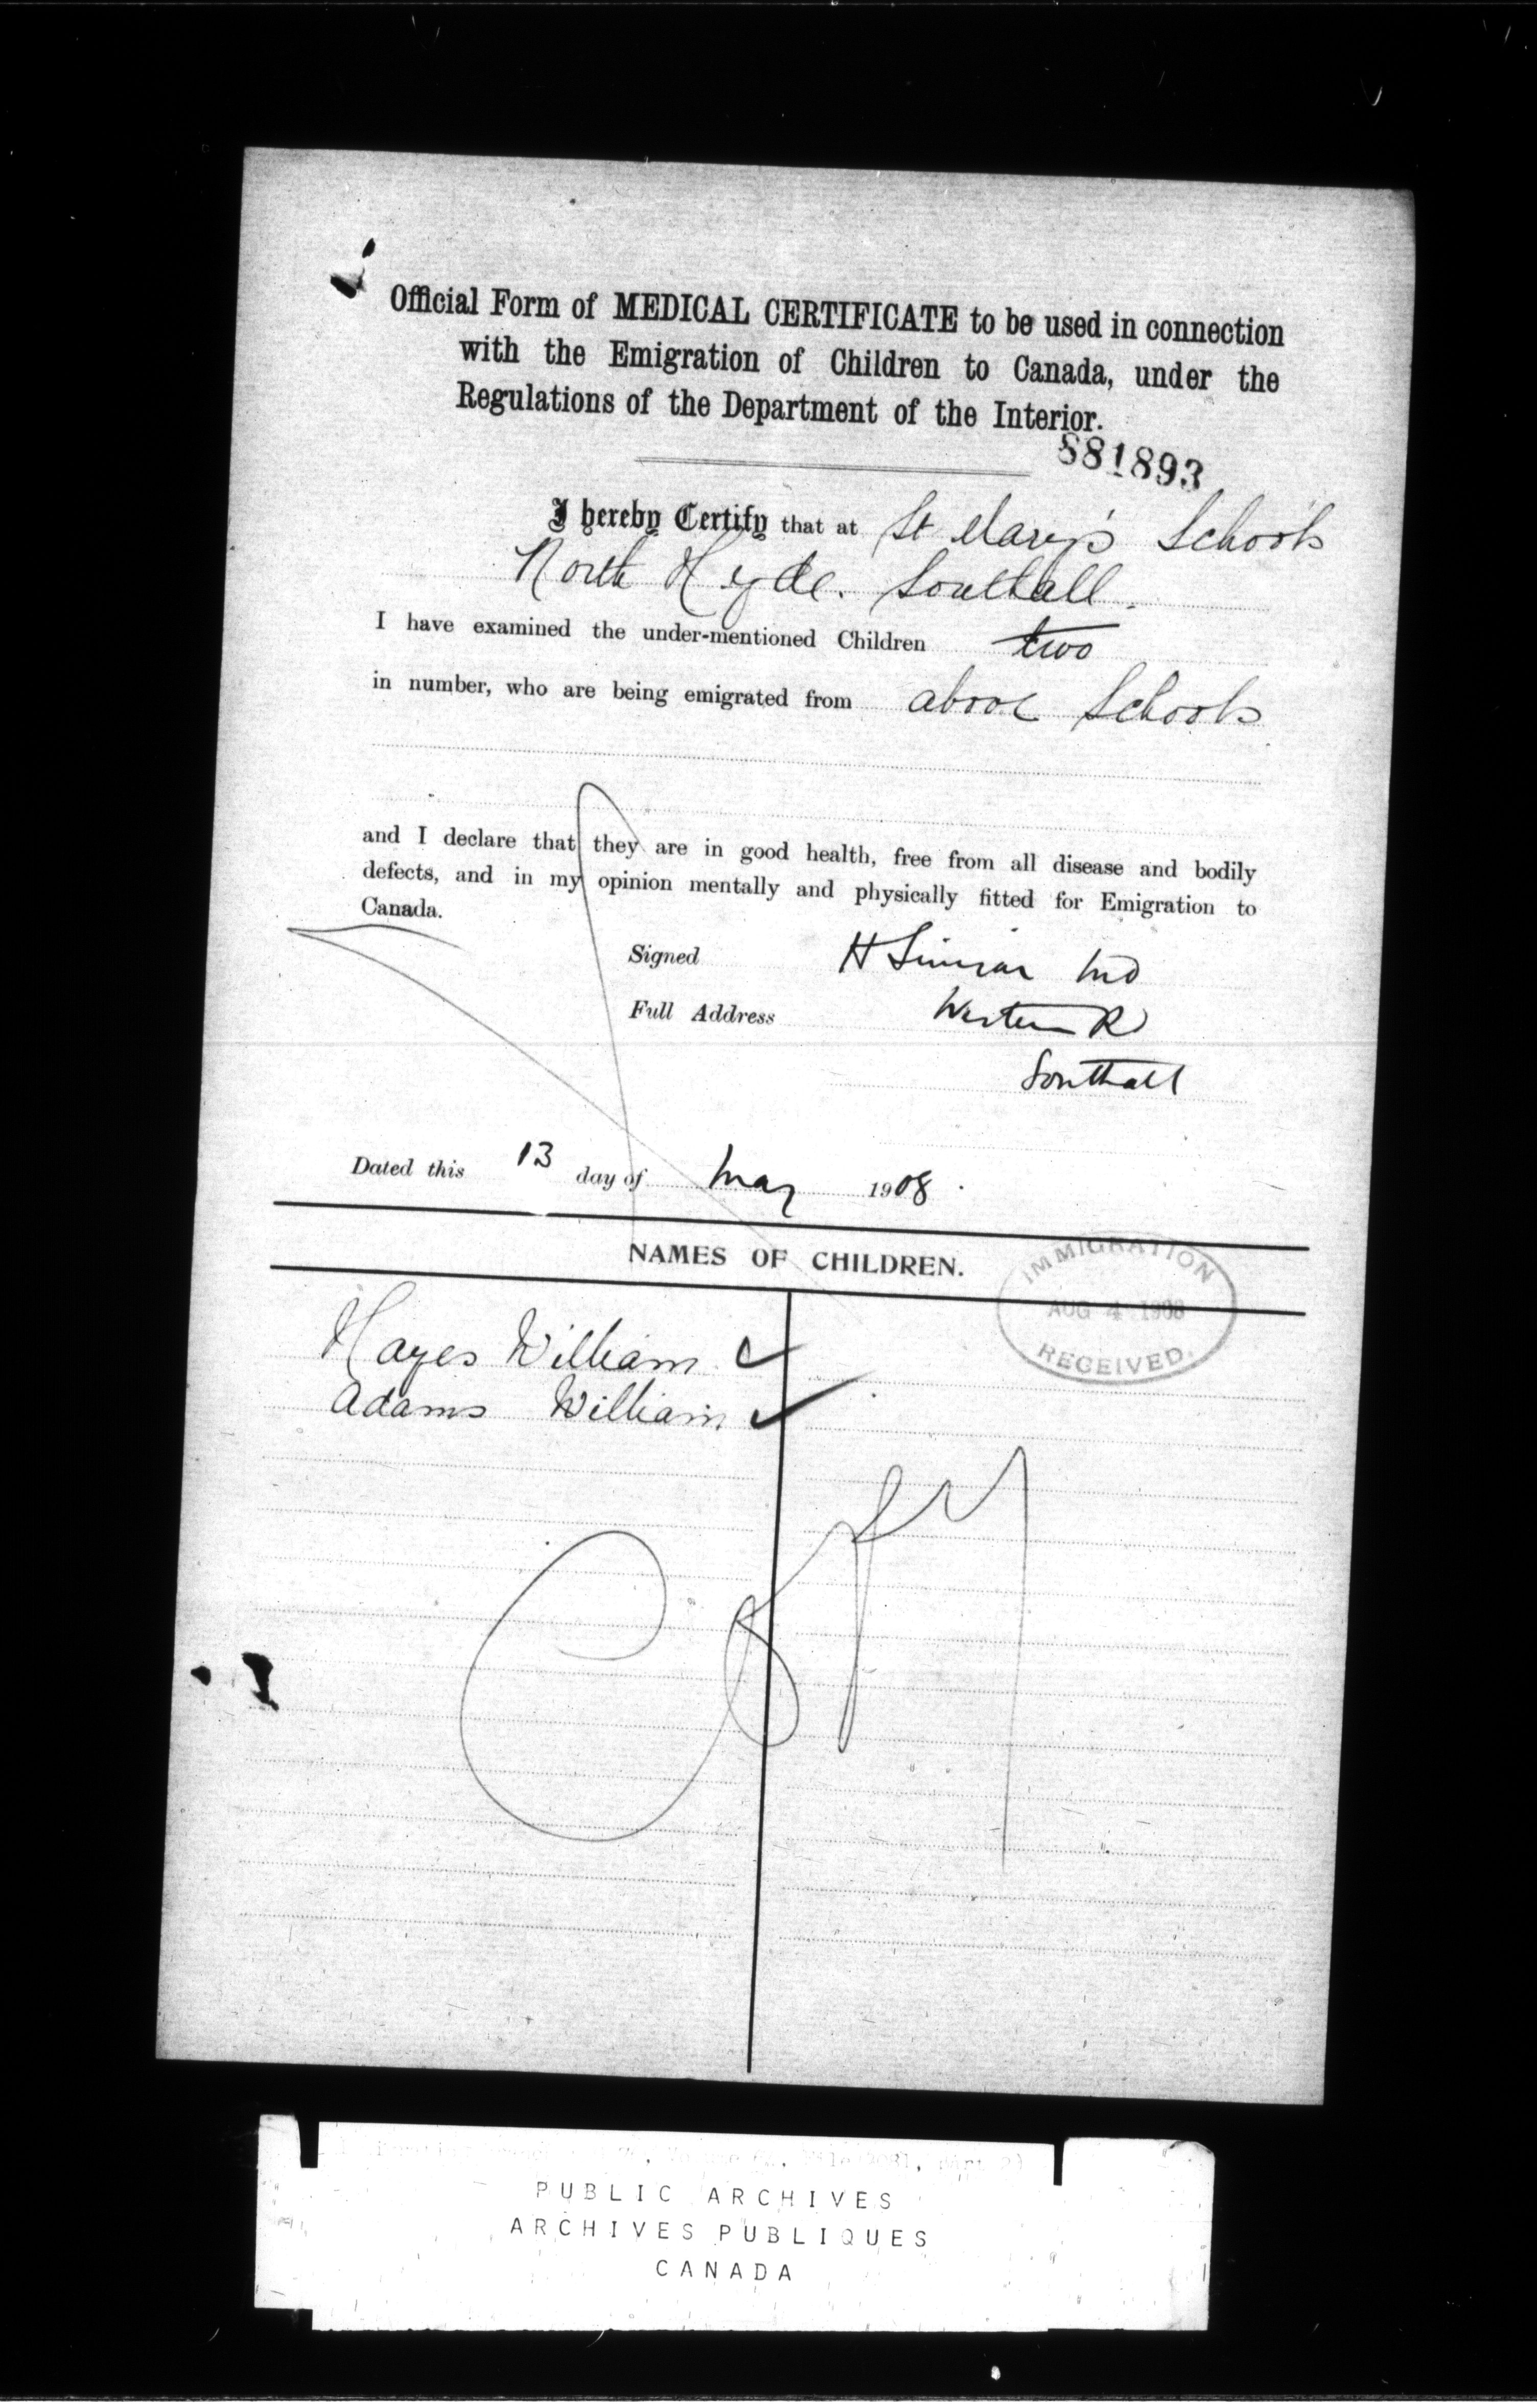 Official Form of MEDICAL CERTIFICATE to be used in connection
with the Emigration of Children to Canada, under the
Regulations of the Department of the Interior.
881893
I hereby Certify that at St Mary's Schools
North Hyde. Southall.
I have examined the under-mentioned Children two
in number, who are being emigrated from above Schools
and I declare that they are in good health, free from all disease and bodily
defects, and in my opinion mentally and physically fitted for Emigration to
Canada.
Signed H MD
Full Address Western Rd
Southall
Dated this 13 day of May 1908.
NAMES OF CHILDREN.
IMMIGRATION
AUG 4 1908
RECEIVED.
Hayes William
Adams William
Copy
PUBLIC ARCHIVES
ARCHIVES PUBLIQUES
CANADA